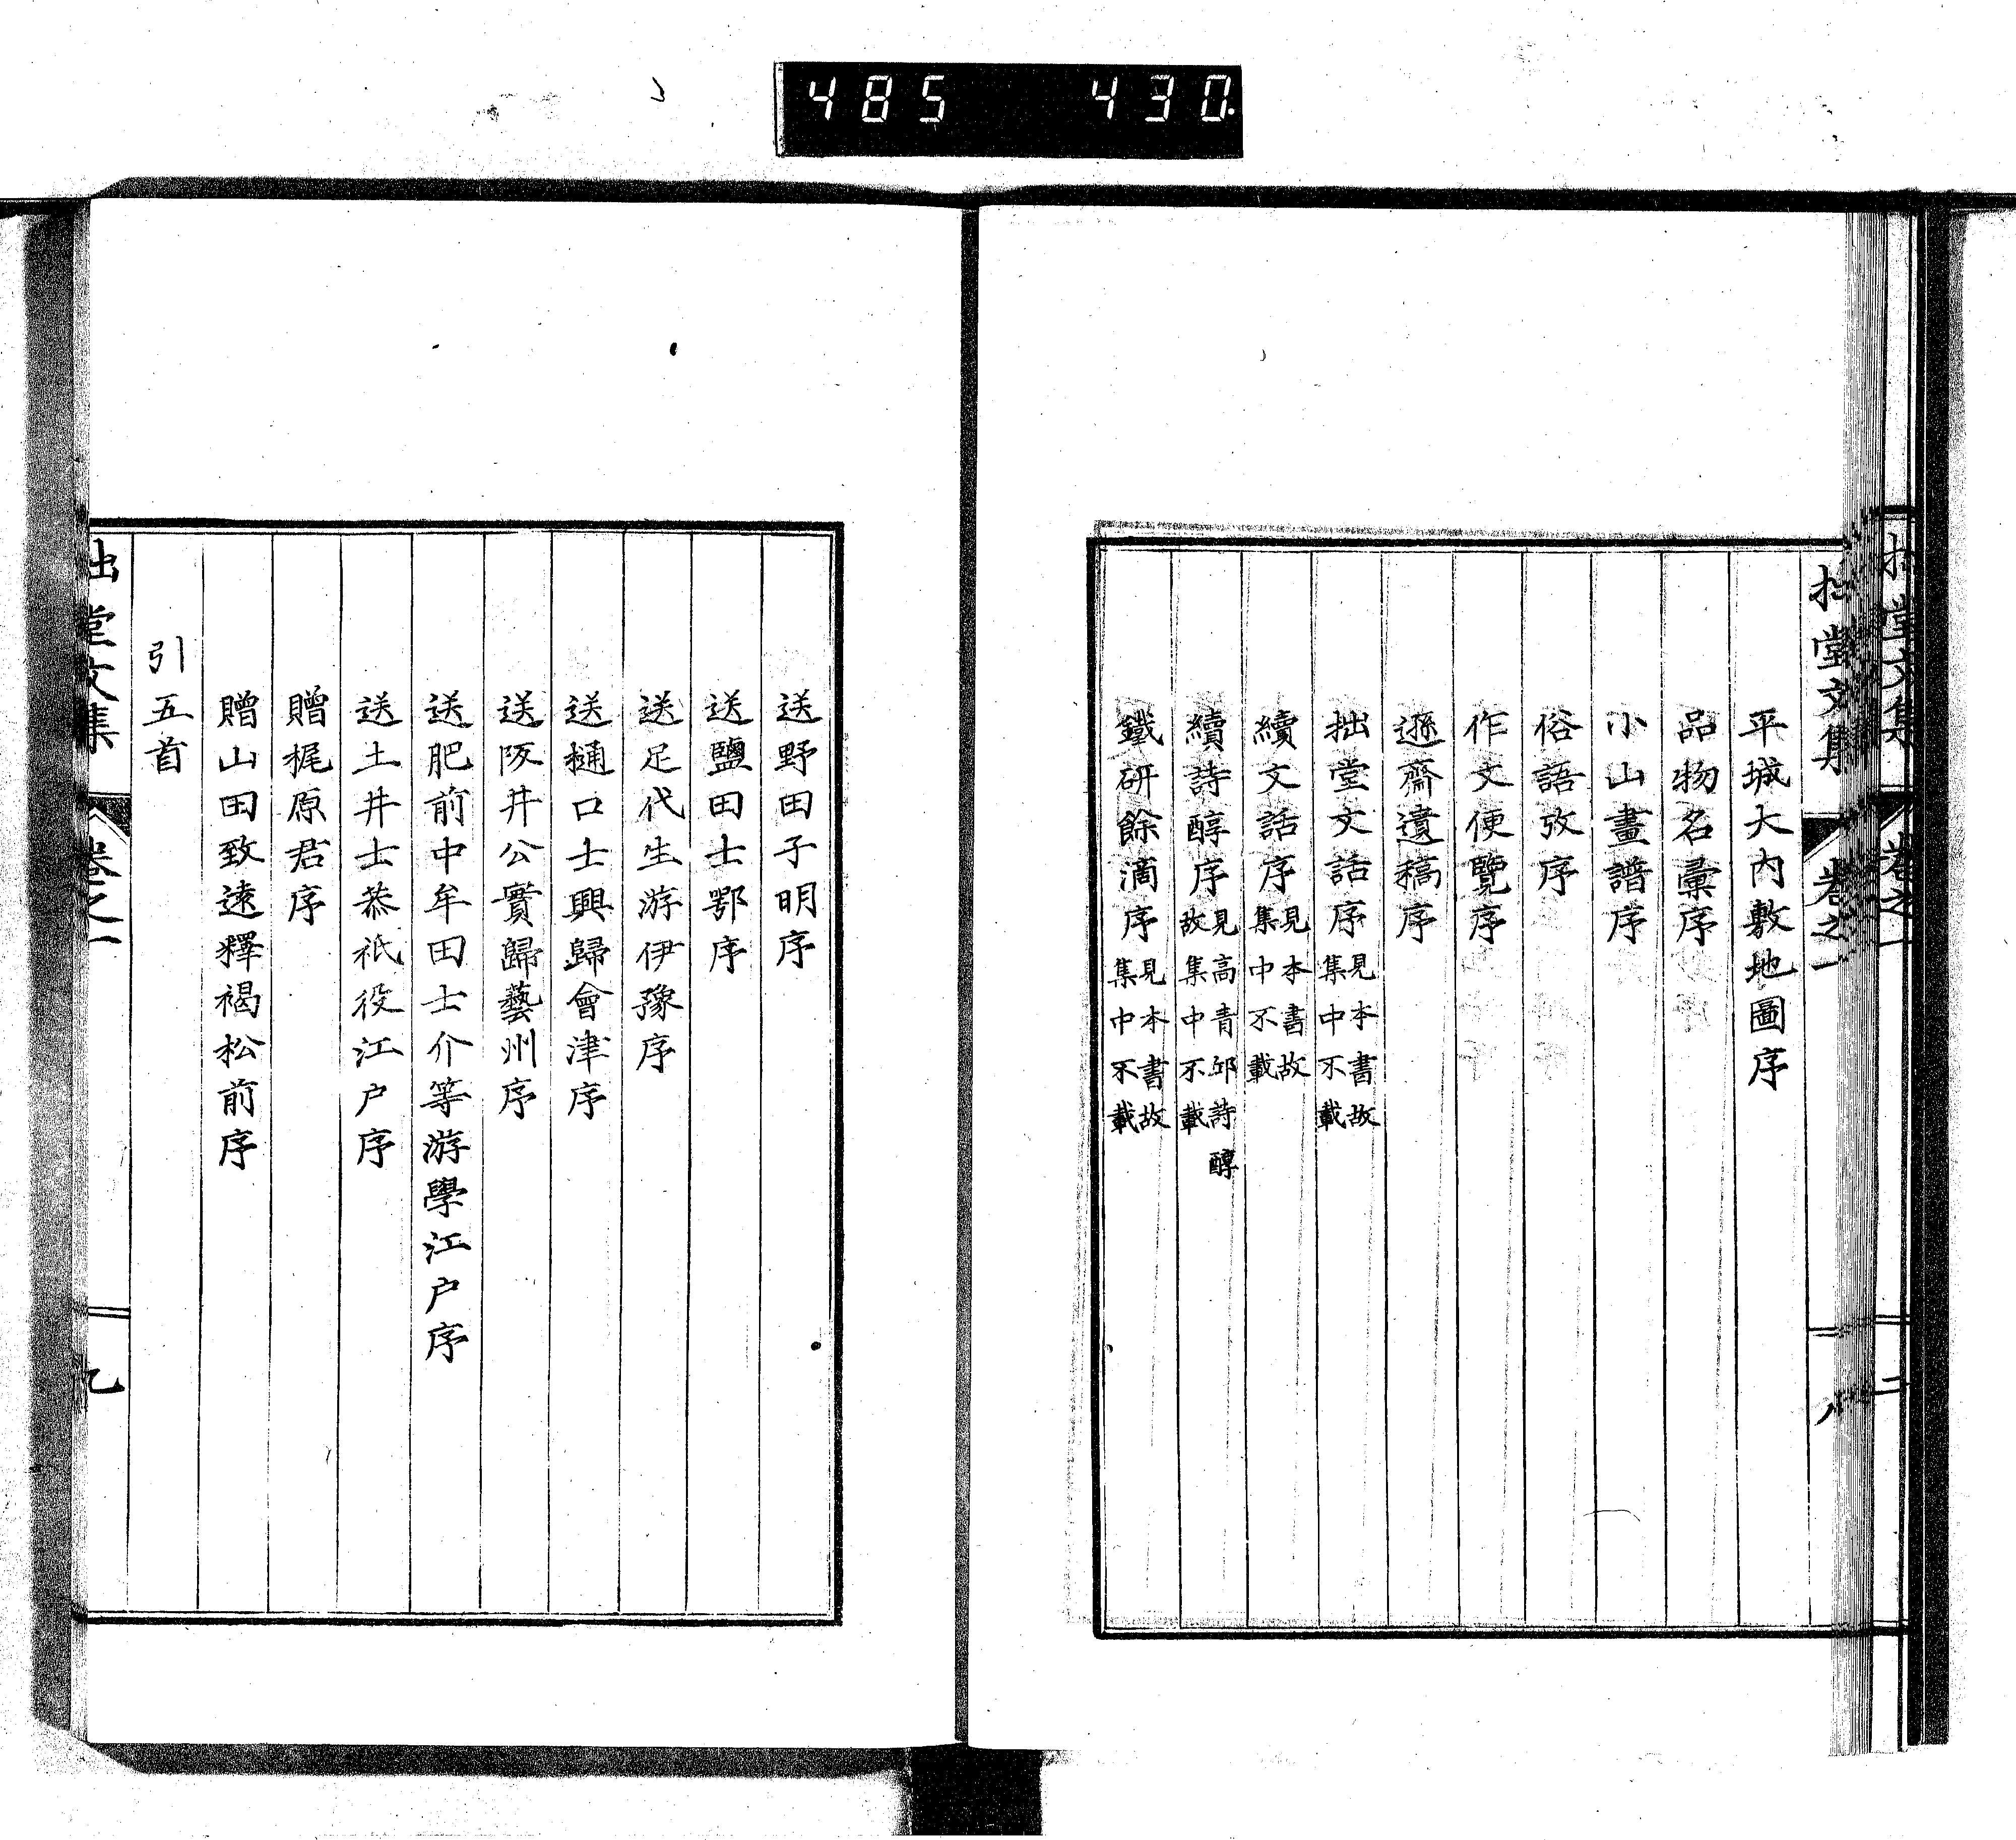 485 430
拙堂文集 卷之一 八
平城大內敷地圖序
品物名彙序
小山畫譜序
俗語攷序
作文便覽序
遜齋遺稿序
拙堂文話序見本書故集中不載
續文話序見本書故集中不載
續詩醇序見高青邱詩醇故集中不載
鐵研餘滴序見本書故集中不載
送野田子明序
送鹽田士鄂序
送足代生游伊豫序
送樋口士興歸會津序
送阪井公實歸藝州序
送肥前中牟田士介等游學江戶序
送土井士恭祇役江戶序
贈梶原君序
贈山田致遠釋褐松前序
引五首
拙堂文集 卷之一 九